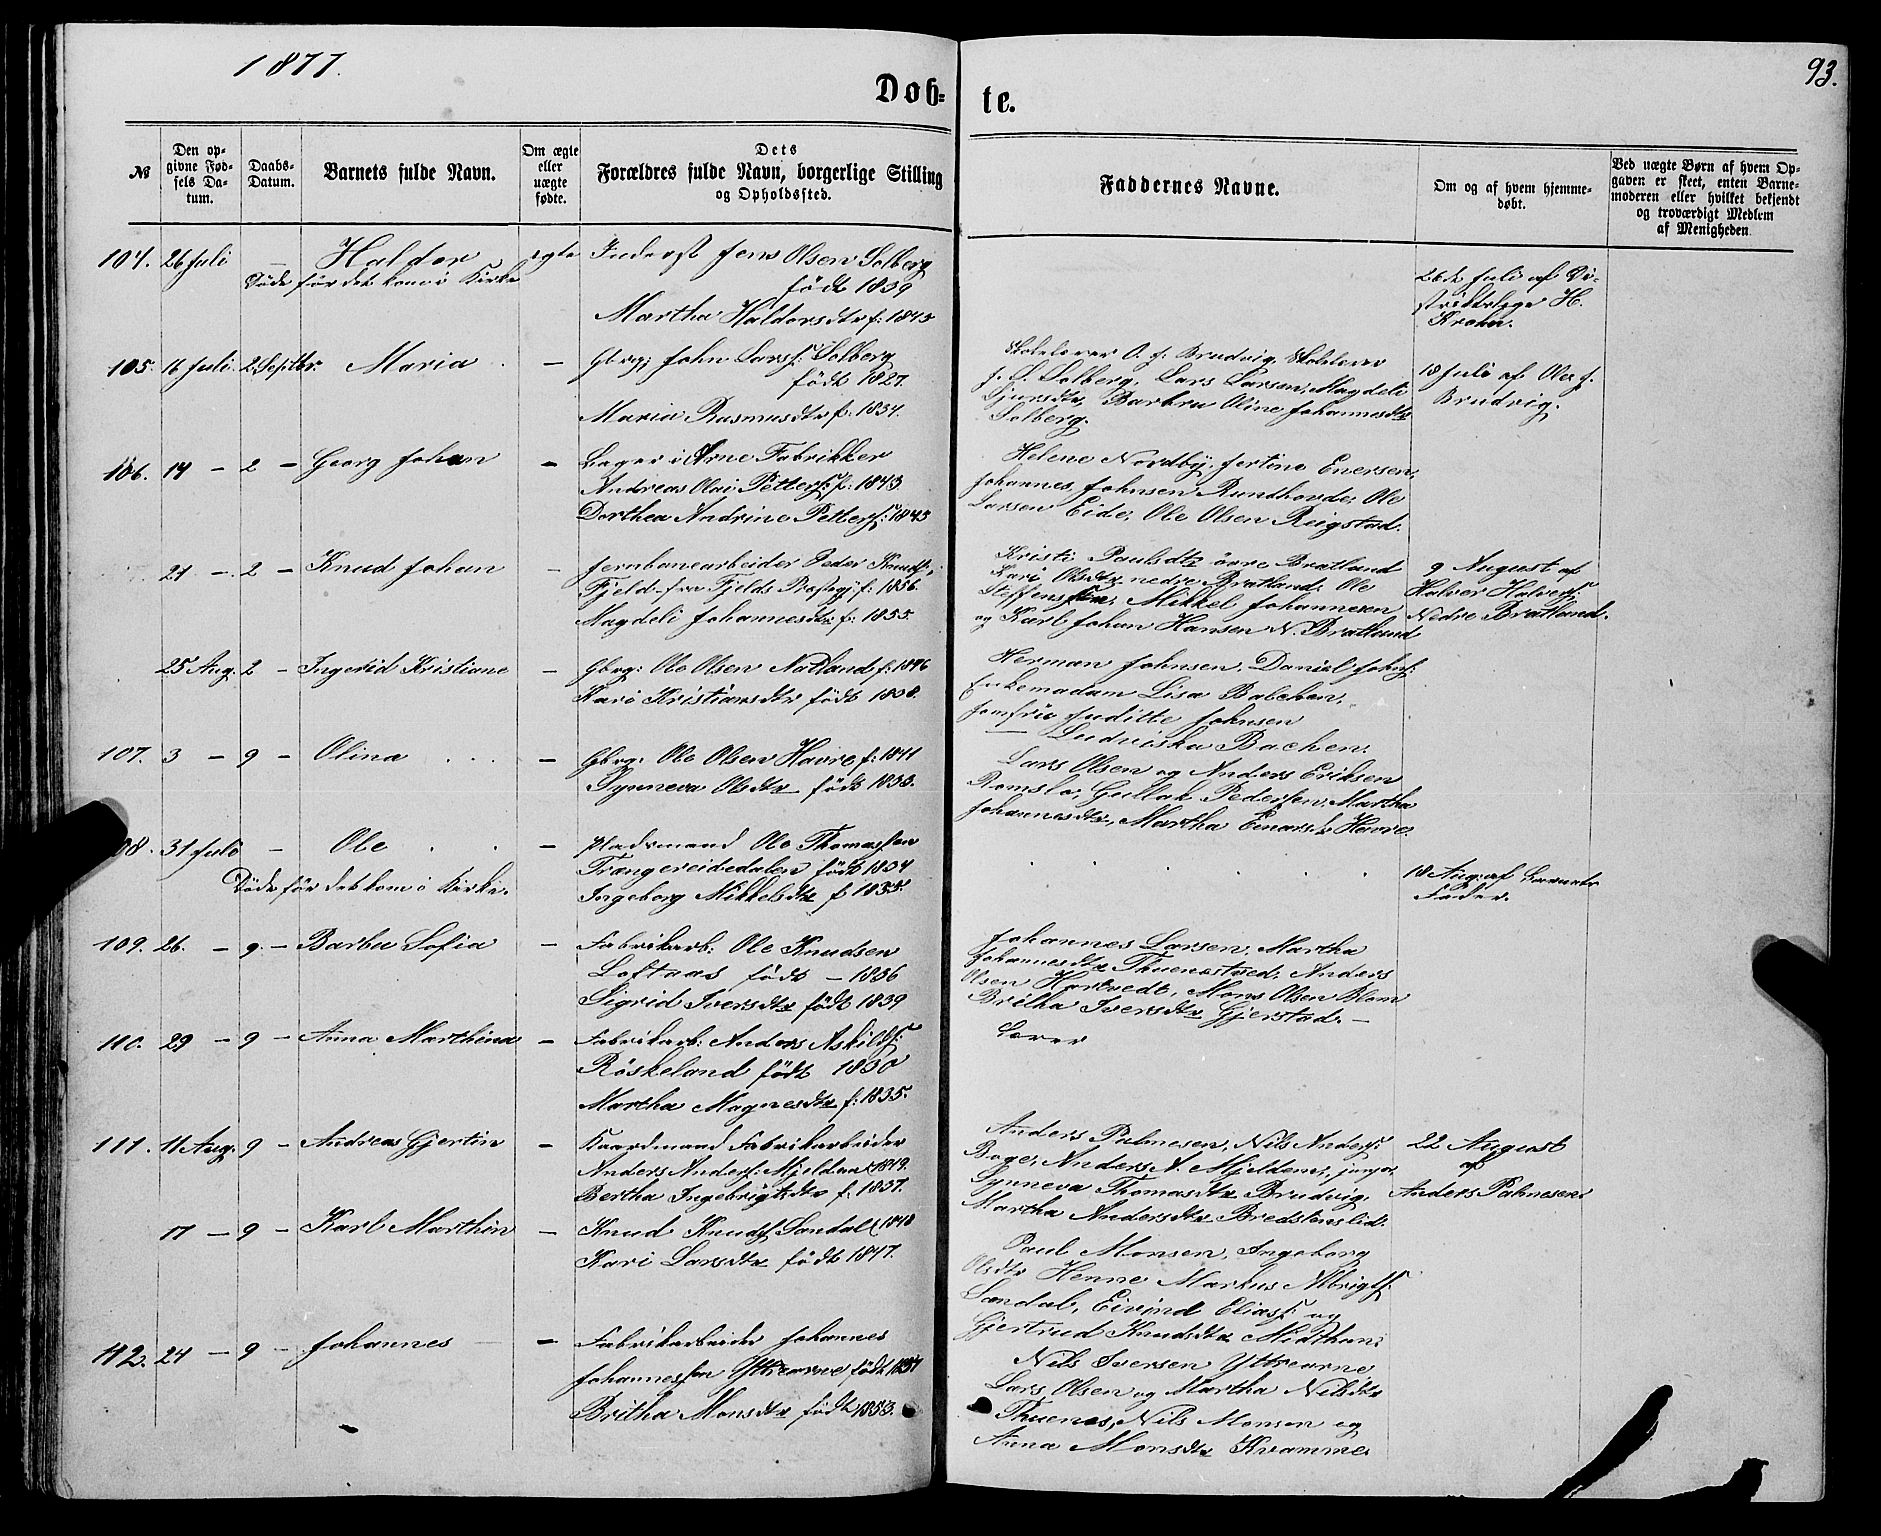 1877.
93.
Døb-
te.
№
Den op-
givne Fød-
sels Da-
tum.
Daabs-
Datum.
Barnets fulde Navn.
Om ægte
eller
uægte
fødte.
Dets
Forældres fulde Navn, borgerlige Stilling
og Opholdssted.
Faddernes Navne.
Om og af hvem hjemme-
døbt.
Ved uægte Børn af hvem Op-
gaven er skeet, enten Barne-
moderen eller hvilket bekjendt
og troværdigt Medlem
af Menigheden.
104. 26 Juli — Haldor ægte Inderst Jens Olsen Solberg
Döde för det kom i Kirke
födt 1839
Martha Haldorsdtr f: 1845
26de Juli af Di-
striktslæge H.
Krohn.
105. 16 Juli. 2 Septbr. Maria — Gbrg; John Larss: Solberg
födt 1827.
Maria Rasmusdtr f: 1834.
Skolelærer O. J. Brudvig, Skolelærer
J. L. Solberg, Lars Larsen, Magdeli
Gjursdtr, Barbru Oline Johannesdtr
Solberg.
18 Juli af Ole J.
Brudvig.
106. 14 — 2 — Georg Johan — Bager i Arne Fabrikker
Andreas Olai Petters: f: 1843
Dorthea Andrine Petters: 1845
Helene Nordby, Jertine Enersen,
Johannes Johnsen Rundhovde, Ole
Larsen Eide, Ole Olsen Rugstad.
21 — 2 — Knud Johan — Jernbanearbeider Peder Knuds:
Fjeld fra Fjelds Præstegj. f: 1856.
Magdeli Johannesdtr f: 1855.
Kristi Paulsdtr övre Bratland
Kari Olsdtr nedre Bratland, Ole
Steffens, Mikkel Johannesen
og Karl Johan Hansen N. Bratland
9 August af
Halvor Halvors:
Nedre Bratland.
25 Aug. 2 — Ingerid Kristiane — Gbrg: Ole Olsen Natland f: 1846
Kari Kristiansdtr födt 1838.
Herman Johnsen, Daniel Johns:
Enkemadam Lisa Balchen,
Jomfru Juditte Johnsen
— Ludviska Bachen.
107. 3 — 9 — Olina — Gbrg: Ole Olsen Havre f: 1841
Synneva Olsdtr födt 1833.
Lars Olsen og Anders Eriksen
Romslo, Gullak Pedersen, Martha
Johannesdtr, Martha Einarsdtr Havre.
108. 31 Juli — Ole — Pladsmand Ole Thomassen
Trængereidedalen födt 1834
Ingeborg Mikkelsdtr f 1835.
Döde för det kom i Kirke.
18 Aug. af Barnets
Fader.
109. 26. — 9. — Barbu Sofia — Fabrikarb: Ole Knudsen
Loftaas födt — 1836
Sigrid Iversdtr födt 1839
Johannes Larsen, Martha
Johannesdtr Thuenestved, Anders
Olsen Hartvedt, Mons Olsen Blom
Britha Iversdtr Gjerstad. —
Lærer
110. 29 — 9 — Anna Marthina — Fabrikarb: Anders Askilds:
Röskeland födt 1830
Martha Magnesdtr f: 1835.
111. 11 Aug. 9 — Andreas Gjertin — Gaardmand Fabrikarbeider
Anders Anders: Mjeldaas 1819.
Bertha Ingebrigtsdtr f: 1837.
Anders Palmesen, Nils Anders:
Boge, Anders A. Mjeldaas, junior,
Synneva Thomasdtr Brudvig,
Martha Andersdtr Bredstenslid.
22 August
af
Anders Palmesen.
17 — 9 — Karl Marthin — Knud Knuds: Sandal 1848
Kari Larsdtr födt 1847.
Paul Monsen, Ingeborg
Olsdtr Henne Markus Albrigts:
Sandal, Eivind Elias: og
Gjertrud Knudsdtr Midthun.
112. 24 — 9 — Johannes — Fabrikarbeider Johannes
Johannessen Yttrearne födt 1834
Britha Monsdtr födt 1853.
Nils Iversen Yttrearne
Lars Olsen og Martha Nilsdtr
Thuenes, Nils Monsen og
Anna Monsdtr Kvamme